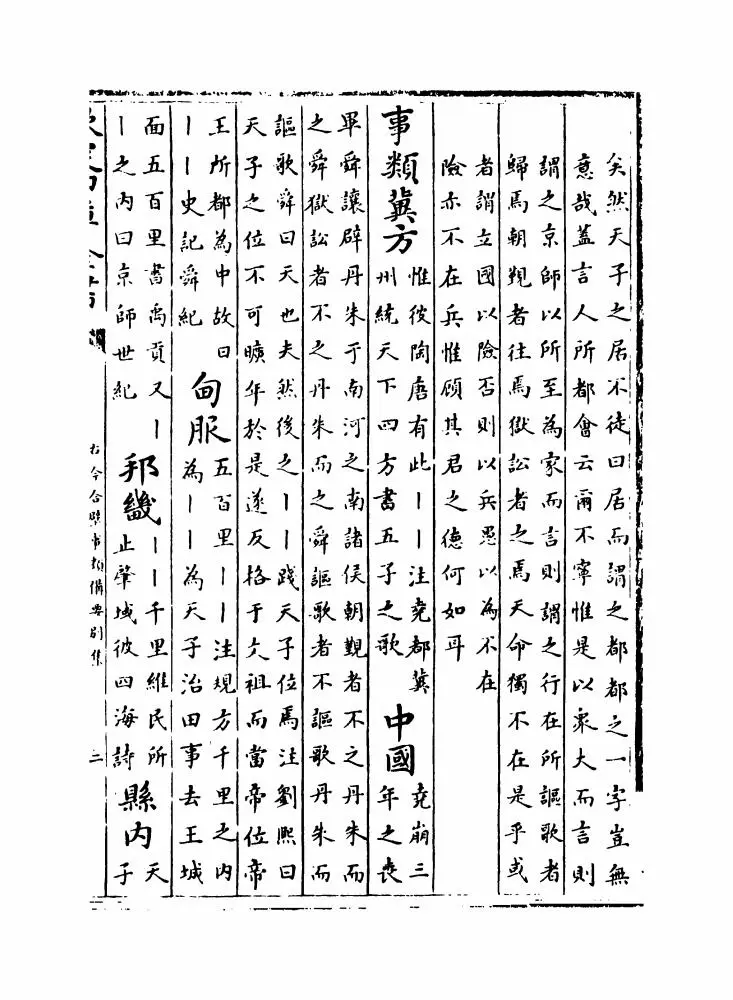 矣然天子之居不徒曰居而謂之都都之一字豈無
意哉蓋言人所都會云爾不寧惟是以衆大而言則
謂之京師以所至為家而言則謂之行在所謳歌者
歸焉朝覲者往焉獄訟者之焉天命獨不在是乎或
者謂立國以險否則以兵愚以為不在
險亦不在兵惟顧其君之德何如耳
事類冀方
惟彼陶唐有此丨丨注堯都冀
州統天下四方書五子之歌
中國
堯崩三
年之喪
畢舜讓辟丹朱于南河之南諸侯朝覲者不之丹朱而
之舜獄訟者不之丹朱而之舜謳歌者不謳歌丹朱而
謳歌舜曰天也夫然後之丨丨踐天子位焉注劉熙曰
天子之位不可曠年於是遂反格于文祖而當帝位帝
王所都為中故曰
丨丨史記舜紀
甸服
五百里丨丨注規方千里之内
為丨丨為天子治田事去王城
面五百里書禹貢又丨
丨之内曰京師世紀
邦畿
丨丨千里維民所
止肇域彼四海詩
縣内
天
子
古今合璧事類備要别集
二